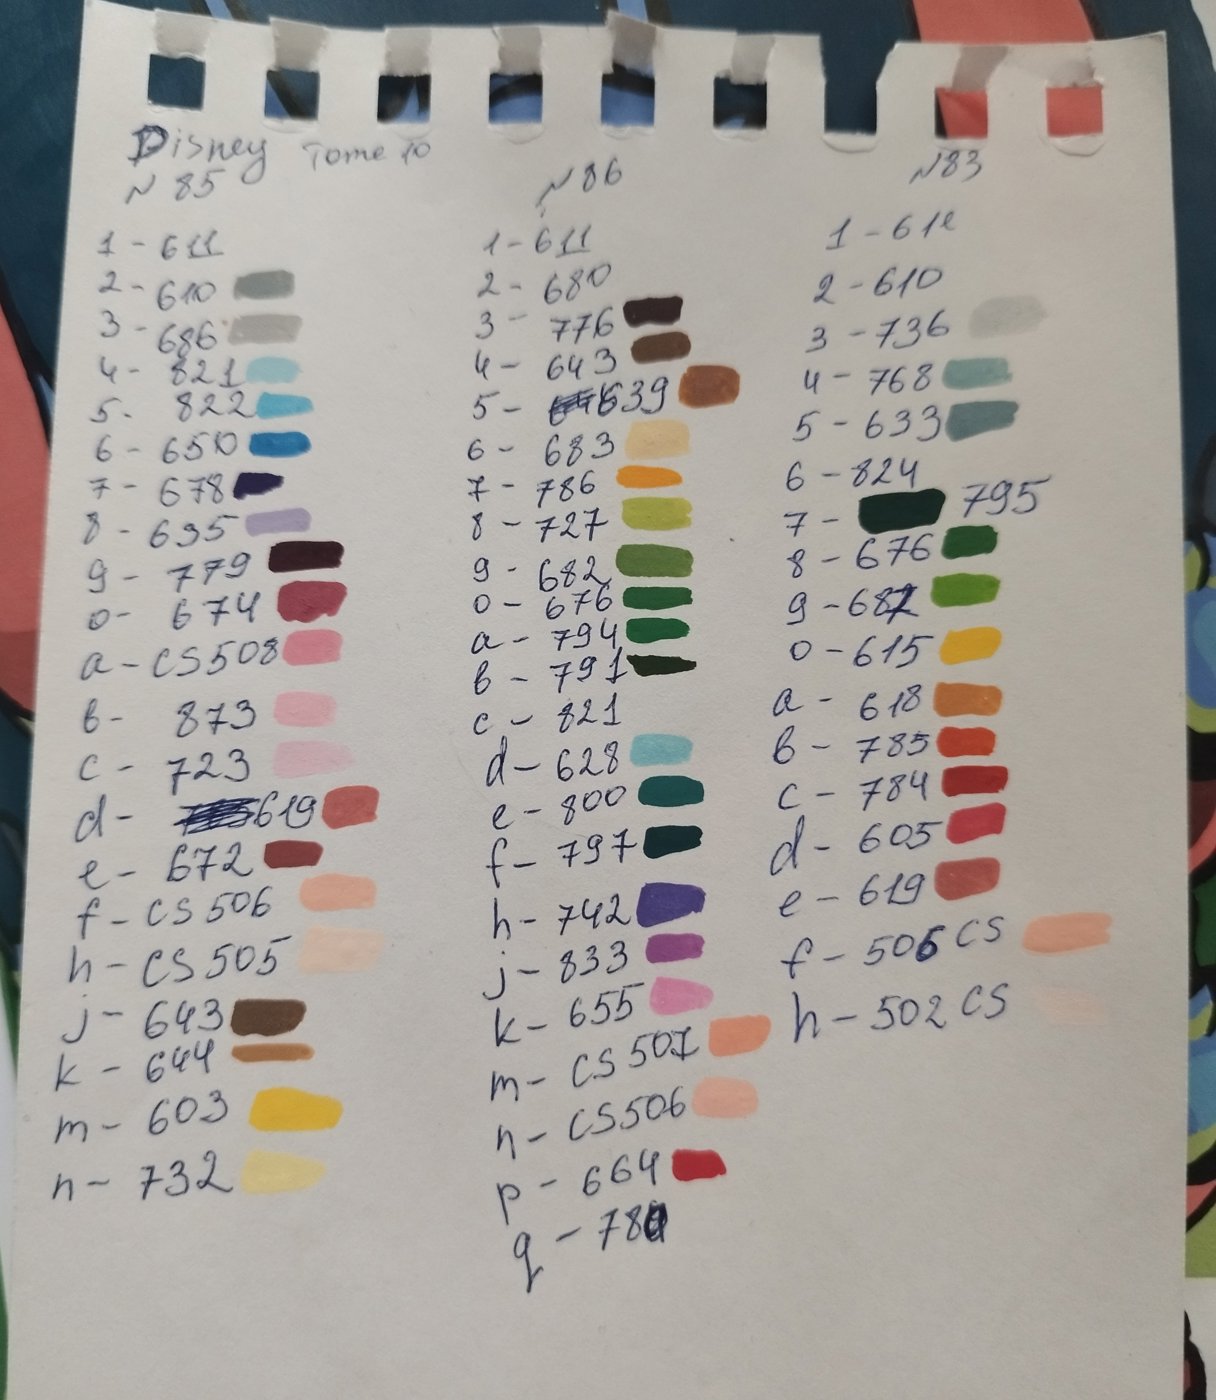 Disney Tome 10
N 85
1 - 611
2 - 610
3 - 686
4 - 821
5 - 822
6 - 650
7 - 678
8 - 695
9 - 779
0 - 674
a - CS508
b - 873
c - 723
d - 619
e - 672
f - CS 506
h - CS 505
j - 643
k - 644
m - 603
n - 732
N 86
1 - 611
2 - 680
3 - 776
4 - 643
5 - 639
6 - 683
7 - 786
8 - 727
9 - 682
0 - 676
a - 794
b - 791
c - 821
d - 628
e - 800
f - 797
h - 742
j - 833
k - 655
m - CS 507
n - CS506
p - 664
q -
N83
1 - 611
2 - 610
3 - 736
4 - 768
5 - 633
6 - 824
7 - 795
8 - 676
9 -
0 - 615
a - 618
b - 785
c - 784
d - 605
e - 619
f - 506 CS
h - 502 CS